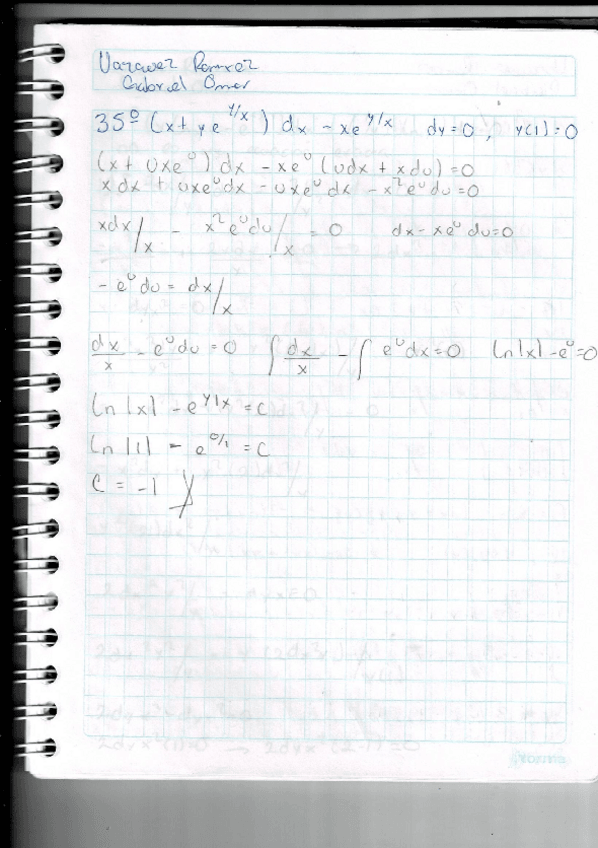 Vazquez Ramirez
Gabriel Omar
35º (x + y e^{y/x}) dx - x e^{y/x} dy = 0, y(1) = 0
(x + υxe^υ) dx - xe^υ (υdx + xdυ) = 0
xdx + υxe^υdx - υxe^υdx - x²e^υdυ = 0
xdx/x - x²e^υdυ/x = 0 dx - xe^υdυ = 0
- e^υdυ = dx/x
dx/x - e^υdυ = 0 ∫ dx/x - ∫ e^υdx = 0 ln|x| - e^υ = 0
ln|x| - e^{y/x} = c
ln|1| - e^{0/1} = c
C = -1
norma